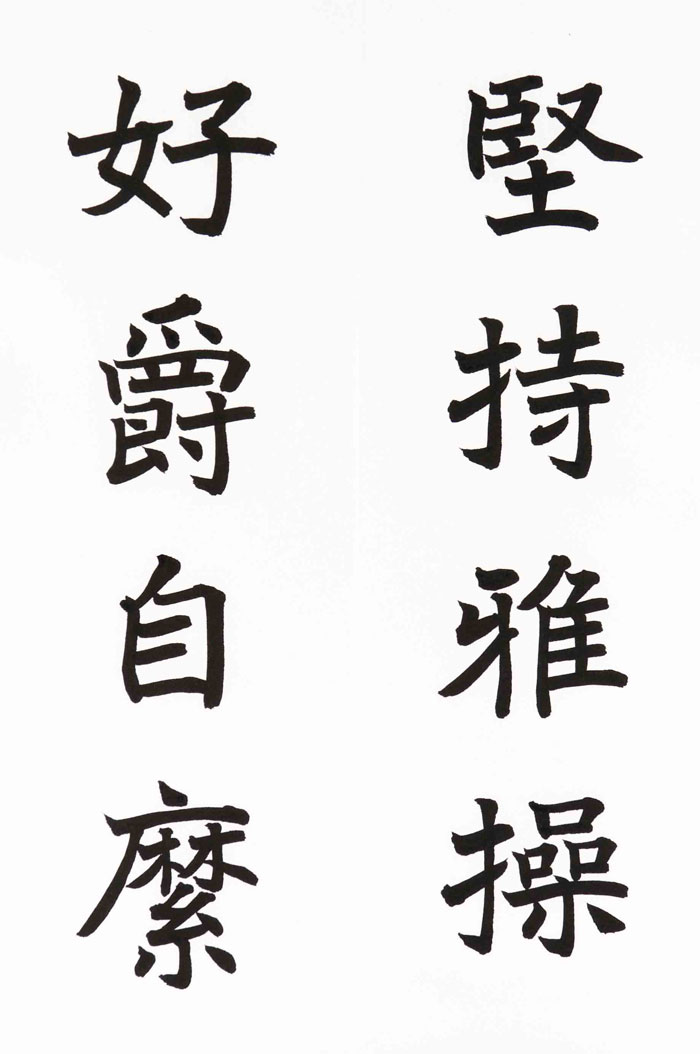 堅持雅操
好爵自縻